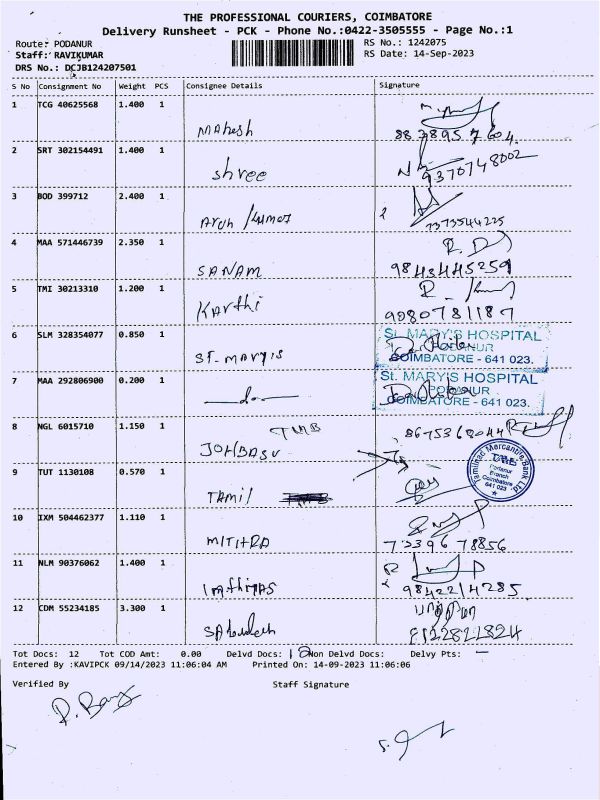 THE PROFESSIONAL COURIERS, COIMBATORE
Delivery Runsheet - PCK - Phone No.:0422-3505555 - Page No.:1
Route: PODANUR RS No.: 1242075
Staff: RAVIKUMAR RS Date: 14-Sep-2023
DRS No.: DCJB124207501
S No Consignment No Weight PCS Consignee Details Signature
1 TCG 40625568 1.400 1 Mahesh
2 SRT 302154491 1.400 1 Shree 9370748002
3 BOD 399712 2.400 1 Arun Kumar 7373544225
4 MAA 571446739 2.350 1 SANAM 9843445259
5 TMI 30213310 1.200 1 Karthi 9080781187
6 SLM 328354077 0.850 1 ST-MARYIS St. MARY'S HOSPITAL
PODANUR
COIMBATORE - 641 023.
7 MAA 292806900 0.200 1 —do— St. MARY'S HOSPITAL
PODANUR
COIMBATORE - 641 023.
8 NGL 6015710 1.150 1 8675368044
Tamilnad Mercantile Bank Ltd.
TMB
Podanur
Branch
Coimbatore
641 023
9 TUT 1130108 0.570 1 TAMil
10 IXM 504462377 1.110 1 MITHRA 7339678856
11 NLM 90376062 1.400 1 9842214285
12 CDM 55234185 3.300 1
Tot Docs: 12 Tot COD Amt: 0.00 Delvd Docs: 12 Non Delvd Docs: Delvy Pts: —
Entered By :KAVIPCK 09/14/2023 11:06:04 AM Printed On: 14-09-2023 11:06:06
Verified By Staff Signature